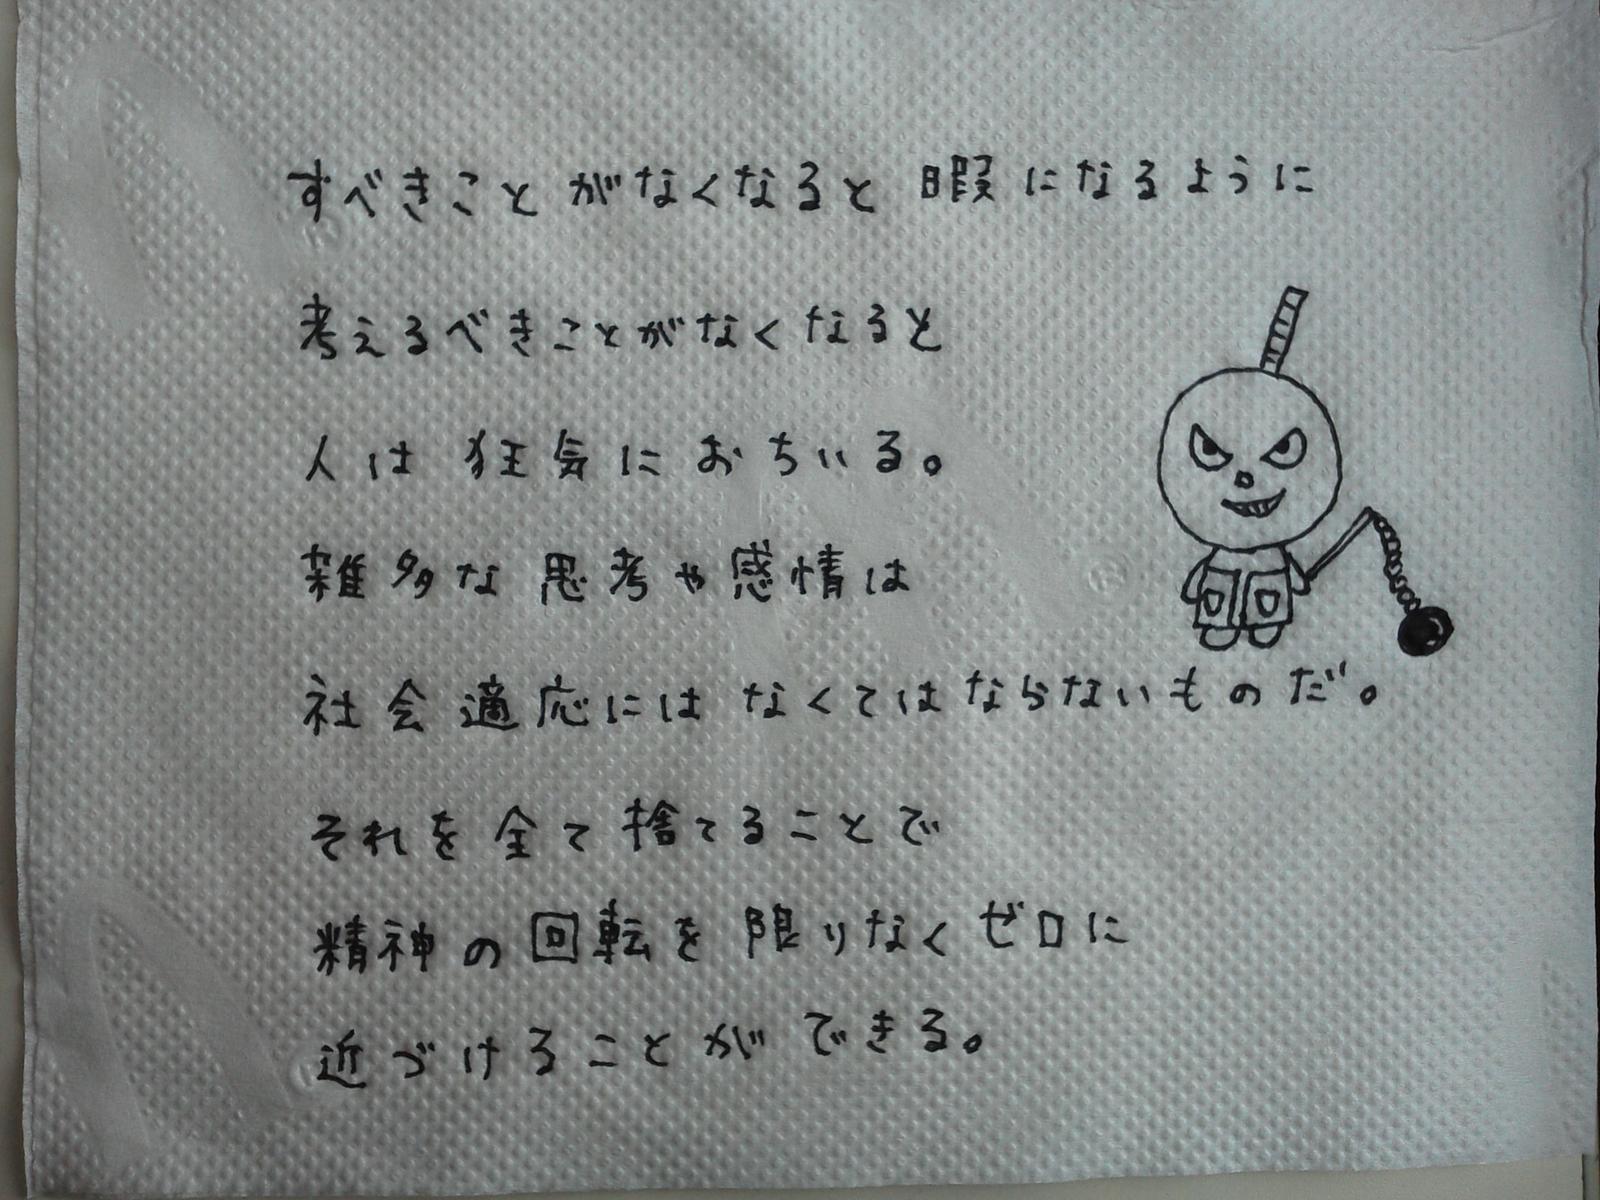 すべきことがなくなると暇になるように
考えるべきことがなくなると
人は狂気におちいる。
雑多な思考や感情は
社会適応にはなくてはならないものだ。
それを全て捨てることで
精神の回転を限りなくゼロに
近づけることができる。